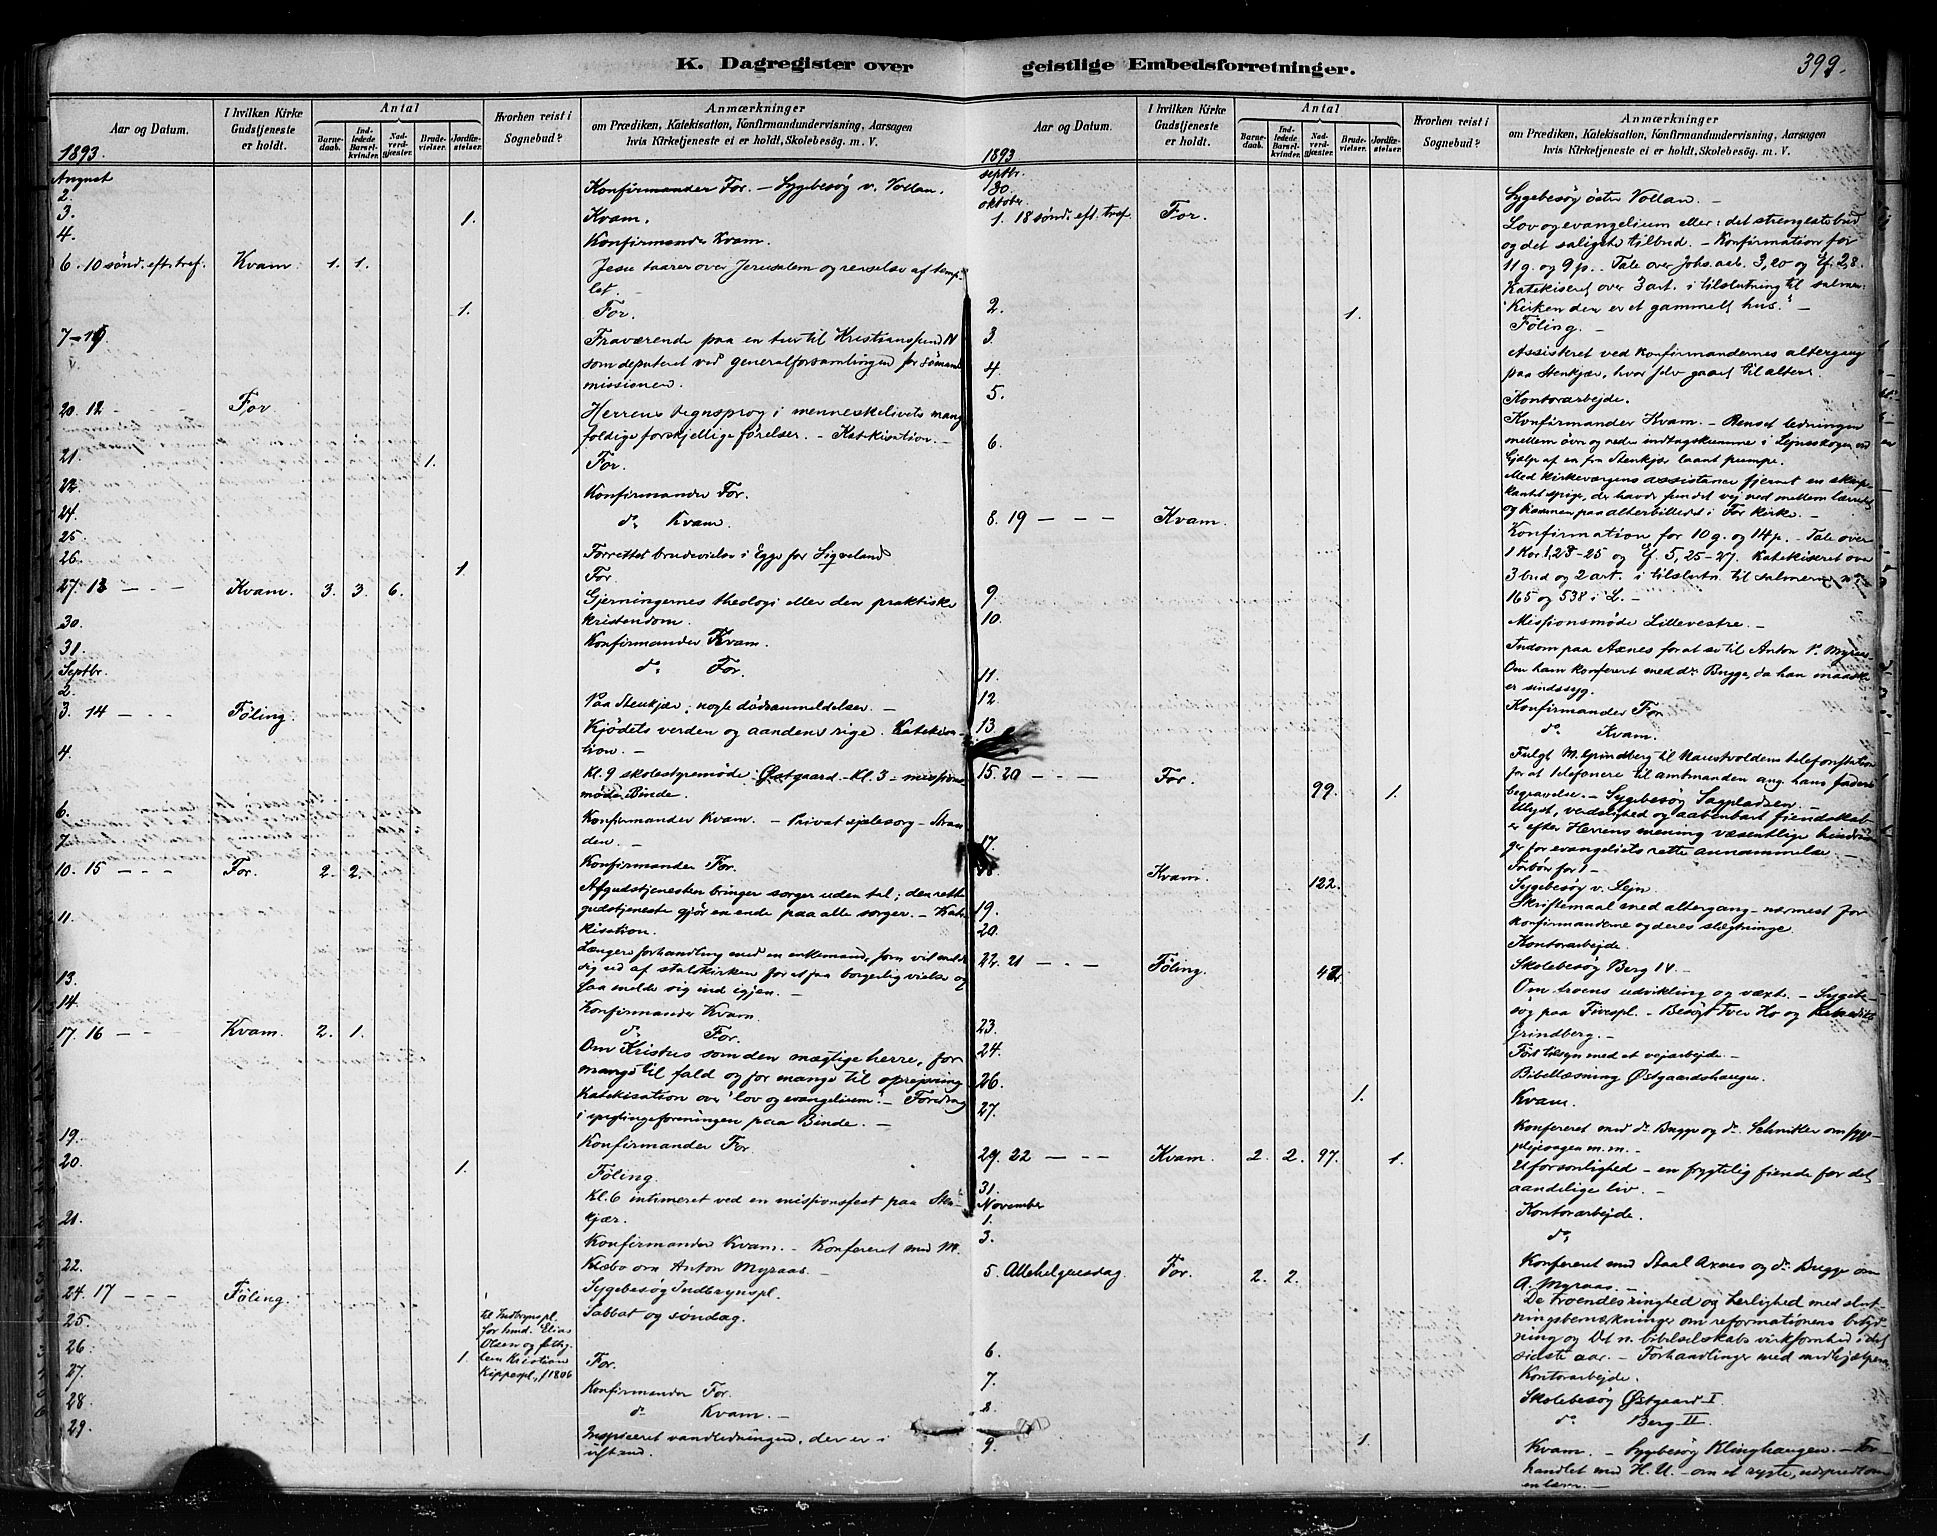 K. Dagregister over geistlige Embedsforretninger.
399.
Aar og Datum.
I hvilken Kirke Gudstjeneste er holdt.
Antal
Barnedaab.
Indledede Barselkvinder.
Nadverdgjæster.
Brudevielser.
Jordfæstelser.
Hvorhen reist i Sognebud?
Anmærkninger
om Prædiken, Katekisation, Konfirmandundervisning, Aarsagen
hvis Kirketjeneste ei er holdt, Skolebesøg. m. V.
1893.
August
2. Konfirmander For. – Sygebesøg v. Vollan.
3. 1. Kvam.
4. Konfirmander Kvam.
6. 10 sønd. eft. tref. Kvam. 1. 1. Jesu taarer over Jerusalem og renselse af temp-
let. –
1. For.
7–19. Fraværende paa en tur til Kristianssund N
som deputeret ved generalforsamlingen for sømands
missionen.
20. 12 – – – For Herrens tegnsprog i menneskelivets mang
foldige forskjellige førelser. – Katekisation. –
21. 1. For.
22. Konfirmander For.
24. do Kvam.
25.
26. Forrettet brudevielse i Egge for Sigveland
1. For.
27. 13 – – – Kvam. 3. 3. 6. Gjerningernes theologi eller den praktiske
kristendom.
30. Konfirmander Kvam.
31. do For.
Septbr.
2. Paa Stenkjær; nogle dødsanmeldelser. –
3. 14 – – – Føling. Kjødets verden og aandens rige. Katekisa-
tion. –
4. Kl. 9 skolestyremøde Østgaard – Kl. 3 – missions
møde Binde.
6. Konfirmander Kvam. – Privat sjelesorg – Stran
den. –
7. Konfirmander For.
10. 15 – – – For. 2. 2. Afgudstjenesten bringer sorger uden tal; den rette
gudstjeneste gjør en ende paa alle sorger. – Kate
kisation.
11. Længere forhandling med en enkemand, som vil melde
sig ud af statskirken for at faa borgerlig vielse og
saa melde sig ind igjen. –
13. Konfirmander Kvam.
14. do For.
17. 16 – – – Kvam. 2. 1. Om Kristus som den mægtige herre, for
mange til fald og for mange til oprejsning
Katekisation over "lov og evangelium". – Foredrag
i ynglingeforeningen paa Binde. –
19. Konfirmander For.
20. 1. Føling.
Kl. 6 intimeret ved en missionsfest paa Sten-
kjær.
21. Konfirmander Kvam. – Konfereret med M.
Klæbo om Anton Myraas. –
22. Sygebesøg Indbrynspl.
24. 17 – – – Føling. til Indbrynspl. for Sabbat og søndag.
25.
26. 1. For.
Elias Olsen og
Kristian Kippespl., f 1806
27. Konfirmander For.
28. do Kvam. –
29. Inspiceret vandledningen, der er i
ustand.
1893
septbr.
30. Sygebesøg østre Vollan. –
oktober
1. 18 sønd. eft. tref. For. Lov og evangelium eller: det strengeste bud
og det saligste tilbud. – Konfirmation for
11 g. og 9 p. Tale over Johs. aab. 3,20 og Ef. 2,8.
Katekiseret over 3 art. i tilslutning til salmen:
"Kirken den er et gammelt hus." –
2. 1. Føling. –
3. Assisteret ved konfirmandernes altergang
paa Stenkjær, hvor selv gaaet til alters.
4. Kontorarbejde.
5. Konfirmander Kvam. – Renset ledningen
mellem øvre og nedre indtagskumme i Lejnsskogen ved
hjælp af en fra Stenkjær laant pumpe.
6. Med kirkeværgens assistance fjernet en skarp
kantet spiger, der havde fundet vej ned mellem lærredet
og rammen paa alterbilledet i For kirke. –
8. 19 – – – Kvam. Konfirmation for 10 g. og 14 p. – Tale over
1 Kor 1,23–25 og Ef. 5, 25–27. Katekiseret over
3 bud og 2 art. i tilslutn. til salmerne nr.
165 og 538 i L. –
9. Missionsmøde Lillevestre. –
10. Indom paa Axnes for at se til Anton P. Myraas.
Om ham konfereret med dr Bugge, da han maaske
er sindssyg.
11. Konfirmander For.
12. do Kvam.
13. Fulgt M. Grindberg til Naustvoldens telefonstation
for at telefonere til amtmanden ang. hans faders
begravelse. – Sygebesøg Sagpladsen. –
15. 20 – – – For. 99. 1. Ulyst, verdslighed og aabenbart fiendskab
er efter Herrens mening væsentlige hindrin
ger for evangeliets rette annammelse –
Forbøn for 1 –
17. Sygebesøg v. Lejn.
18 Kvam. 122. Skriftemaal med altergang – nærmest for
konfirmanderne og deres slægtninge.
19. Kontorarbejde.
20. Skolebesøg Berg 14. –
22. 21 – – – Føling. Om troens udvikling og væxt. – Sygebe-
søg paa Fivespl. – Besøgt Iver Ho og
Grindberg. –
23. Ført tilsyn med et vejarbejde. –
24. Bibellæsning Østgaardshaugen.
26. 1. Kvam.
27. Konfereret med dr Bugge og dr Schnitler om syge-
plejesagen m.m. –
29. 22 – – – Kvam. 2. 2. 97. 1. Uforsonlighed – en frygtelig fiende for det
aandelige liv. –
31. Kontorarbejde.
November
1. do
3. Konfereret med Staal Axnes og dr Bugge om
A. Myraas.
5. Allehelgensdag. For. 2. 2. De troendes ringhed og herlighed med slut-
ningsbemærkninger om reformationens betyd-
ning og Det n. bibelselskabs virksomhed i det
sidste aar. – Forhandlinger med medhjælperne
6. Kontorarbejde.
7. Skolebesøg Østgaard I
8. do Berg II.
9. 1. Kvam. – Sygebesøg Klinghaugen. – For-
handlet med H. U. – om et rygte, udspredt om
en lærer. –